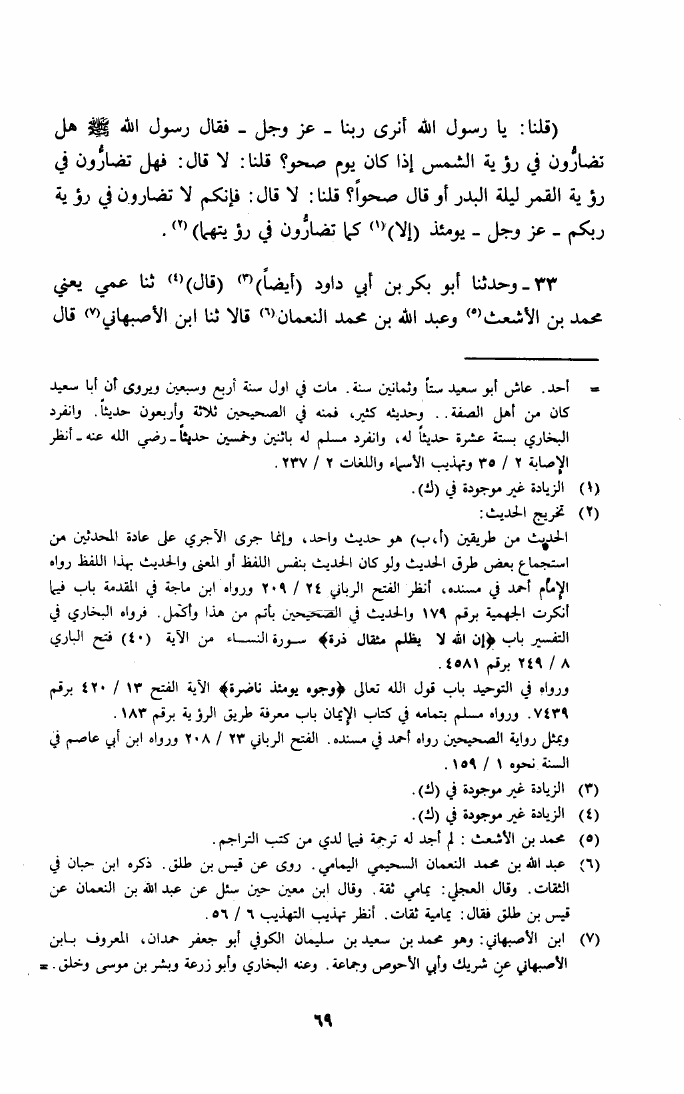 (قلنا: يا رسول الله أنرى ربنا - عز وجل - فقال رسول الله ﷺ هل
تضارُّون في رؤية الشمس إذا كان يوم صحو؟ قلنا: لا قال: فهل تضارُّون في
رؤية القمر ليلة البدر أو قال صحواً؟ قلنا: لا قال: فإنكم لا تضارون في رؤية
ربكم - عز وجل - يومئذ (إلا)(١) كما تضارُّون في رؤيتهما)(٢).
٣٣ - وحدثنا أبو بكر بن أبي داود (أيضاً)(٣) (قال)(٤) ثنا عمي يعني
محمد بن الأشعث(٥) وعبد الله بن محمد النعمان(٦) قالا ثنا ابن الأصبهاني(٧) قال
= أحد. عاش أبو سعيد ستاً وثمانين سنة. مات في اول سنة أربع وسبعين ويروى أن أبا سعيد
كان من أهل الصفة.. وحديثه كثير، فمنه في الصحيحين ثلاثة وأربعون حديثاً. وانفرد
البخاري بستة عشرة حديثاً له، وانفرد مسلم له باثنين وخمسين حديثاً - رضي الله عنه - أنظر
الإصابة ٢ / ٣٥ وتهذيب الأسماء واللغات ٢ / ٢٣٧.
(١) الزيادة غير موجودة في (ك).
(٢) تخريج الحديث:
الحديث من طريقين (أ،ب) هو حديث واحد، وإنما جرى الآجري على عادة المحدثين من
استجماع بعض طرق الحديث ولو كان الحديث بنفس اللفظ أو المعنى والحديث بهذا اللفظ رواه
الإمام أحمد في مسنده، أنظر الفتح الرباني ٢٤ / ٢٠٩ ورواه ابن ماجة في المقدمة باب فيما
أنكرت الجهمية برقم ١٧٩ والحديث في الصحيحين بأتم من هذا وأكمل. فرواه البخاري في
التفسير باب ﴿إن الله لا يظلم مثقال ذرة﴾ سورة النساء من الآية (٤٠) فتح الباري
٨ / ٢٤٩ برقم ٤٥٨١.
ورواه في التوحيد باب قول الله تعالى ﴿وجوه يومئذ ناضرة﴾ الآية الفتح ١٣ / ٤٢٠ برقم
٧٤٣٩. ورواه مسلم بتمامه في كتاب الإيمان باب معرفة طريق الرؤية برقم ١٨٣.
وبمثل رواية الصحيحين رواه أحمد في مسنده. الفتح الرباني ٢٣ / ٢٠٨ ورواه ابن أبي عاصم في
السنة نحوه ١ / ١٥٩.
(٣) الزيادة غير موجودة في (ك).
(٤) الزيادة غير موجودة في (ك).
(٥) محمد بن الأشعث: لم أجد له ترجمة فيما لدي من كتب التراجم.
(٦) عبد الله بن محمد النعمان السحيمي اليمامي. روى عن قيس بن طلق. ذكره ابن حبان في
الثقات. وقال العجلي: يمامي ثقة. وقال ابن معين حين سئل عن عبد الله بن النعمان عن
قيس بن طلق فقال: يمامية ثقات. أنظر تهذيب التهذيب ٦ / ٥٦.
(٧) ابن الأصبهاني: وهو محمد بن سعيد بن سليمان الكوفي أبو جعفر حمدان، المعروف بابن
الأصبهاني عن شريك وأبي الأحوص وجماعة. وعنه البخاري وأبو زرعة وبشر بن موسى وخلق. =
٦٩